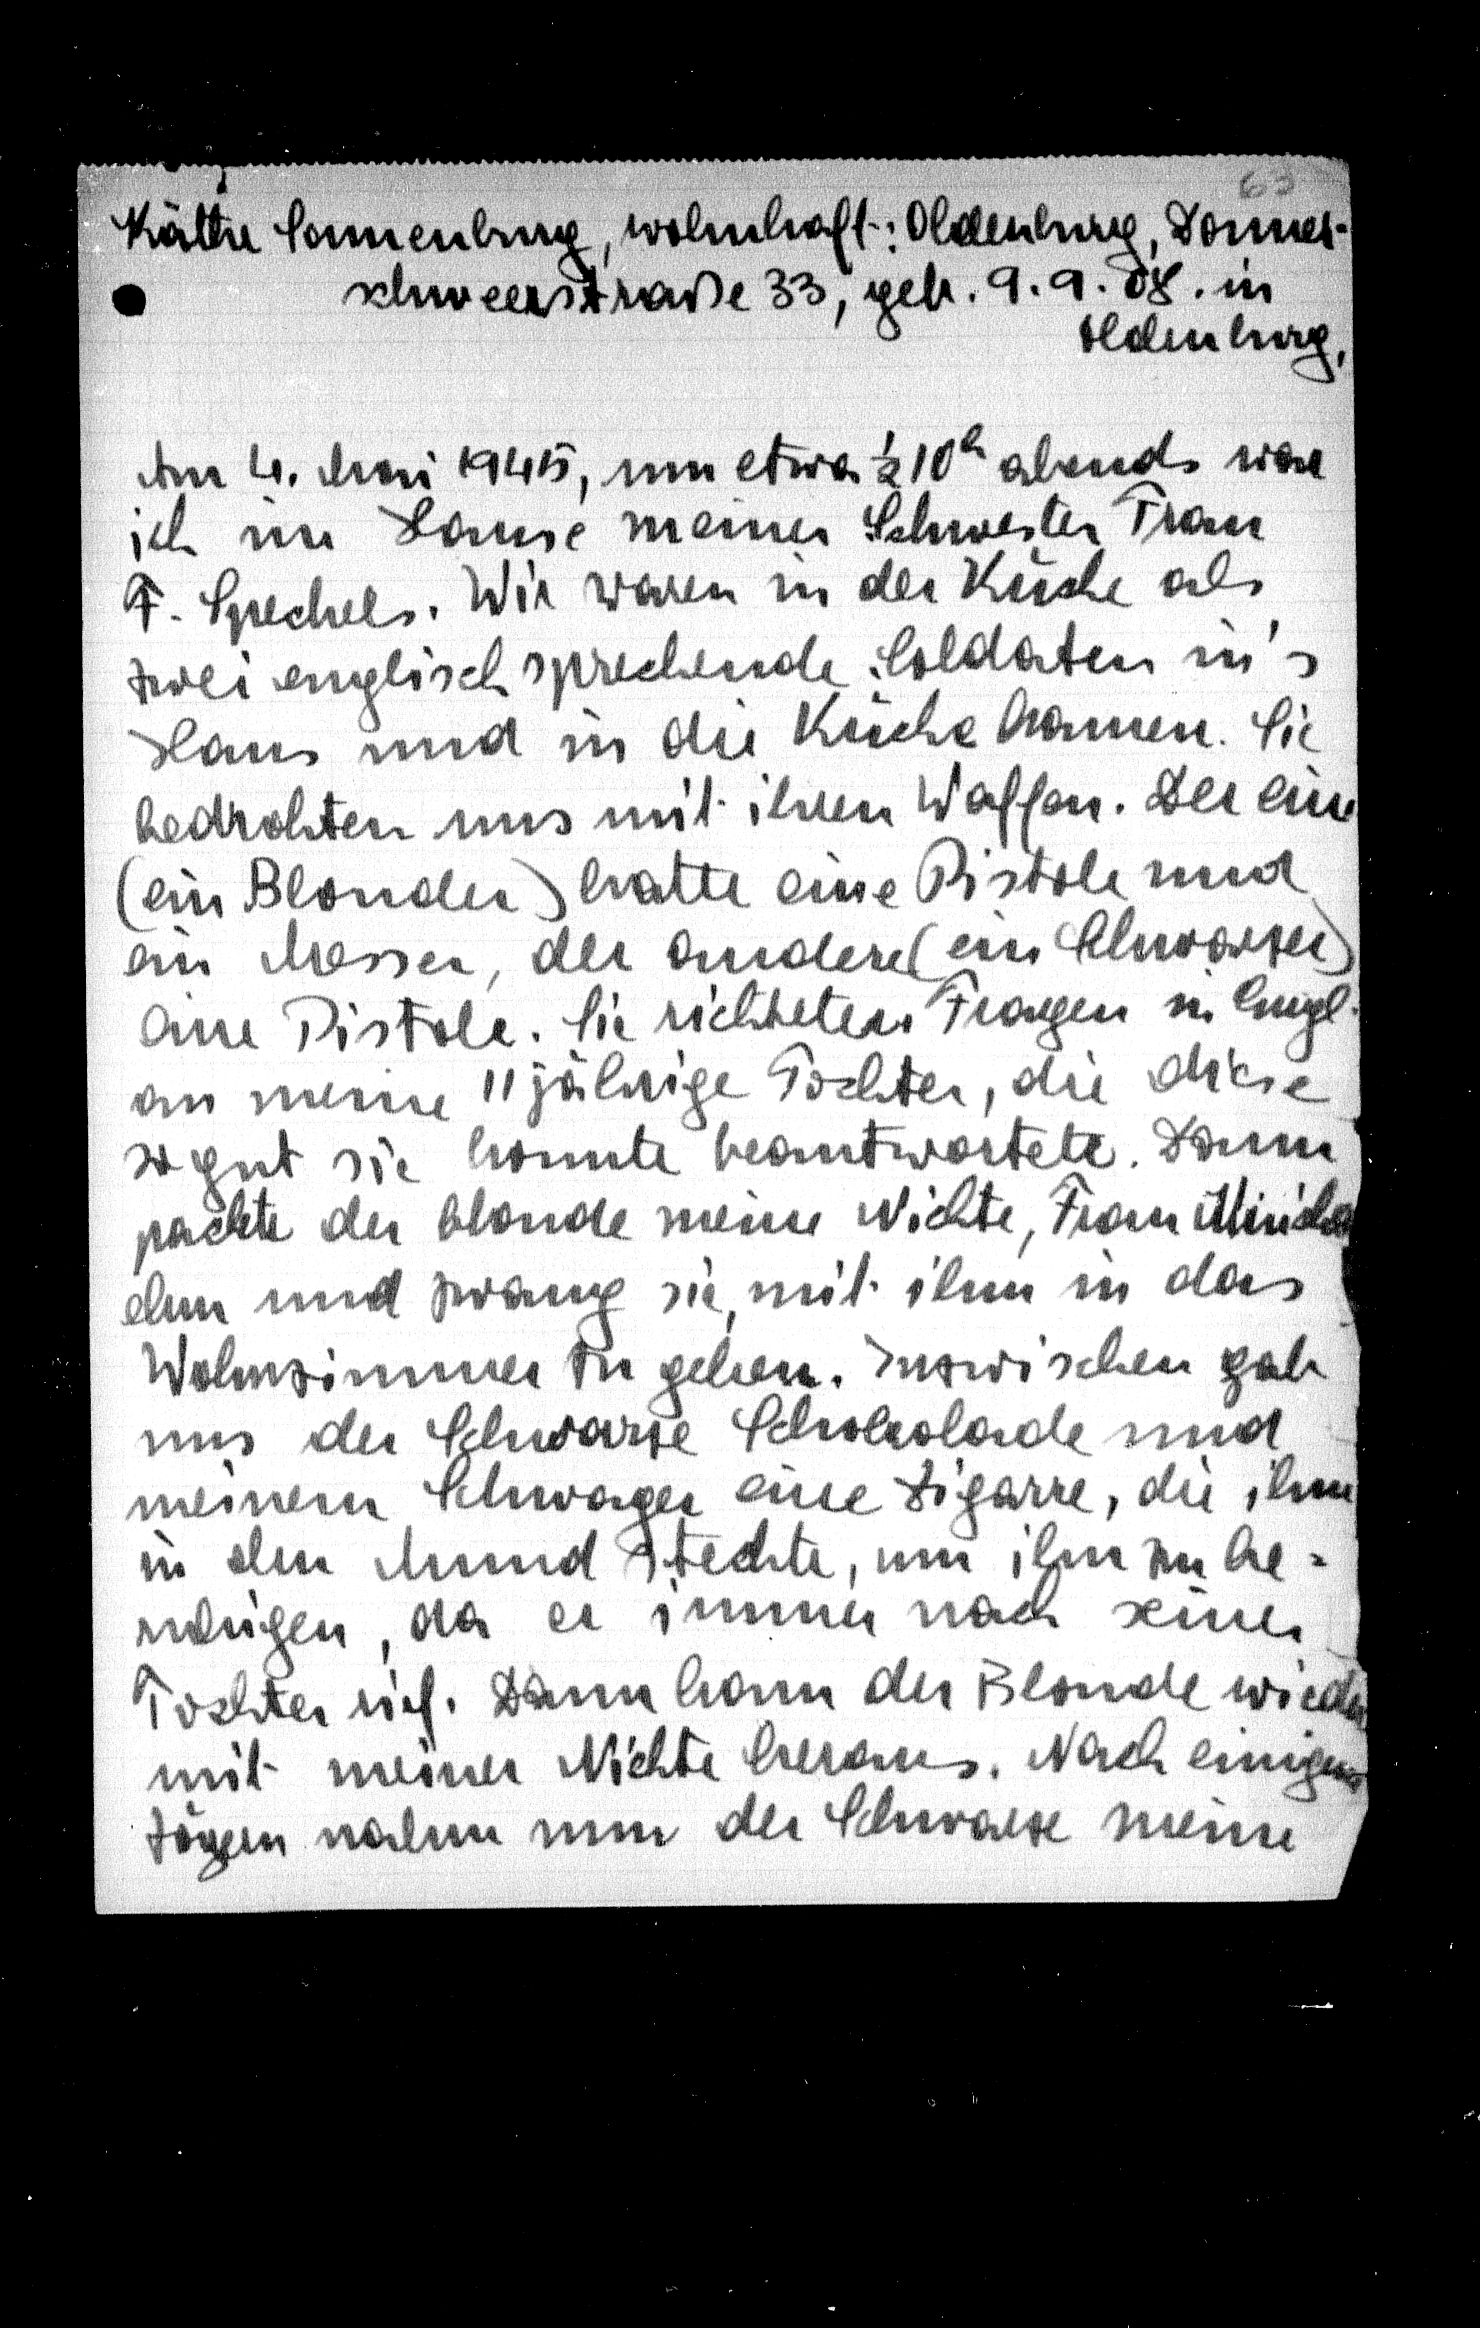 63
Käthe Sonnenburg, wohnhaft: Oldenburg, Donner-
schweerstraße 33, geb. 9.9.08. in
Oldenburg,
Am 4. Mai 1945, um etwa ½10h abends war
ich im Hause meiner Schwester Frau
F. Spechels. Wir waren in der Küche als
zwei englisch sprechende Soldaten in's
Haus und in die Küche kamen. Sie
bedrohten uns mit ihren Waffen. Der eine
(ein Blonder) hatte eine Pistole und
ein Messer, der andere (ein Schwarzer)
eine Pistole. Sie richteten Fragen in Engl.
an meine 11jährige Tochter, die diese
so gut sie konnte beantwortete. Dann
packte der blonde meine Nichte, Frau
und zwang sie, mit ihm in das
Wohnzimmer zu gehen. Inzwischen gab
uns der Schwarze Schokolade und
meinem Schwager eine Zigarre, die ihm
in den Mund steckte, um ihn zu be-
ruhigen, da er immer nach seiner
Tochter rief. Dann kam der Blonde wieder
mit meiner Nichte heraus. Nach einigem
Zögern nahm nun der Schwarze meine